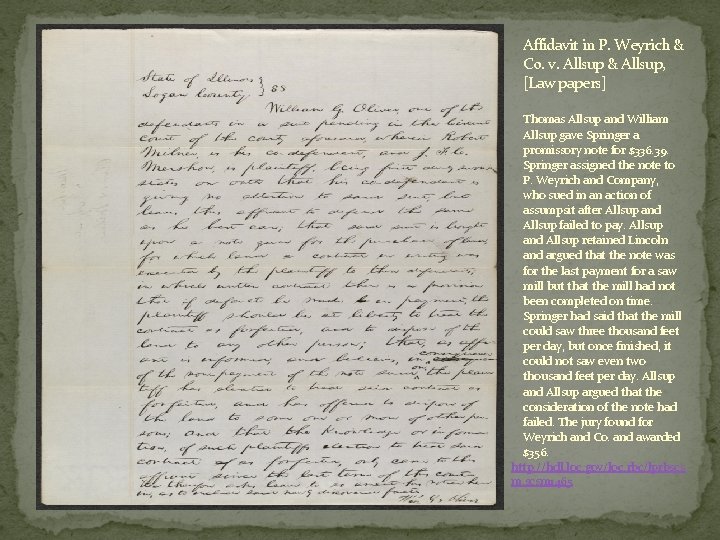 State of Illinois }
Logan County. } SS
William G. Oliver, one of the
defendants in a suit pending in the Circuit
Court of the county aforesaid wherein Robert
Milner, is his co-defendant, and J. H. C.
Mershon, is plaintiff, being first duly sworn
states on oath that his co-defendant is
giving no attention to said suit, but
leaves this affiant to defend the same
as he best can; that said suit is brought
upon a note given for the purchase of land,
for which land a contract in writing was
executed by the plaintiff to the defendants,
in which written contract there is a provision
that if default be made in payment, the
plaintiff should be at liberty to treat the
contract as forfeited, and to dispose of the
land to any other person; that, as affi-
ant is informed, and believes, in consequence
of the nonpayment of the note sued on, the plain-
tiff has elected to treat said contract as
forfeited, and has offered to dispose of
the land to some one or more of other per-
sons; and that the knowledge or informa-
tion, of such plaintiff's election to treat said
contract as forfeited, only came to this
affiant since the last term of this court
he therefore asks leave to
as to newly discovered facts.
Wm. G. Oliver
Affidavit in P. Weyrich &
Co. v. Allsup & Allsup,
[Law papers]
Thomas Allsup and William
Allsup gave Springer a
promissory note for $336.39.
Springer assigned the note to
P. Weyrich and Company,
who sued in an action of
assumpsit after Allsup and
Allsup failed to pay. Allsup
and Allsup retained Lincoln
and argued that the note was
for the last payment for a saw
mill but that the mill had not
been completed on time.
Springer had said that the mill
could saw three thousand feet
per day, but once finished, it
could not saw even two
thousand feet per day. Allsup
and Allsup argued that the
consideration of the note had
failed. The jury found for
Weyrich and Co. and awarded
$356.
http://hdl.loc.gov/loc.rbc/lprbscs
m.scsm1463